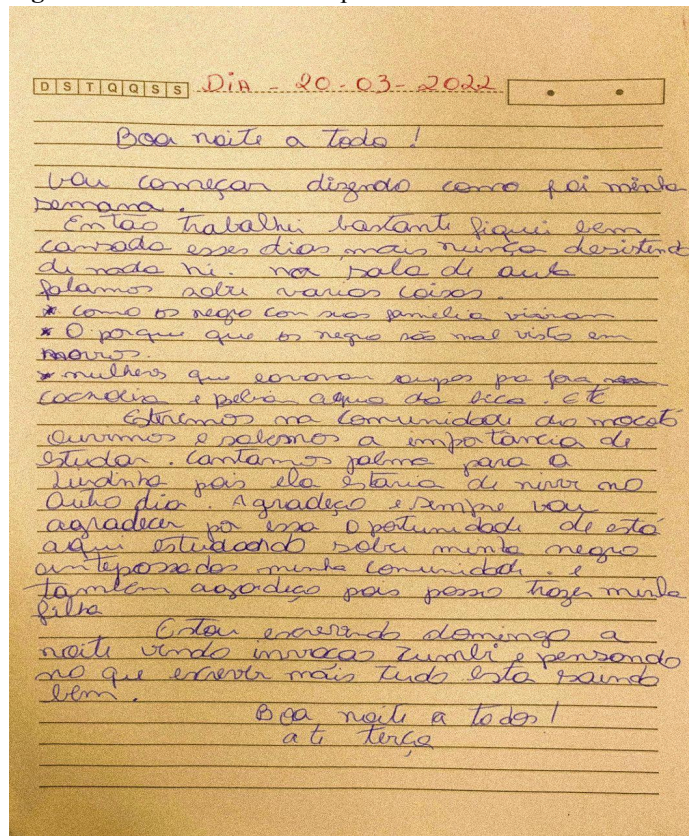 D S T Q Q S S Dia - 20-03-2022
Boa noite a Todo !
vou começar dizendo como foi minha
semana.
Então trabalhei bastante fiquei bem
cansada esses dias mais nunca desistend
de nada ni. na sala de aula
falamos sobre varios coisas.
* como os negro con suas familia viviam
* O porque que os negro são mal visto em
morros.
* mulheres que roupas pa fora,
e aqua da bica. Etc
na comunidade do mocotó
ouvimos e a importancia de
estudar. Cantamos palma para a
pois ela estaria de niver no
outro dia. Agradeço e sempre vou
agradecer por essa oportunidade de está
aqui estudando sobre minha negro
antepassados minha comunidade. e
também agradeço pois posso trazer minha
filha
Estou escrevendo domingo a
noite vendo Zumbi e pensando
no que escrever mais tudo esta saindo
bem.
Boa noite a todos !
ate terça